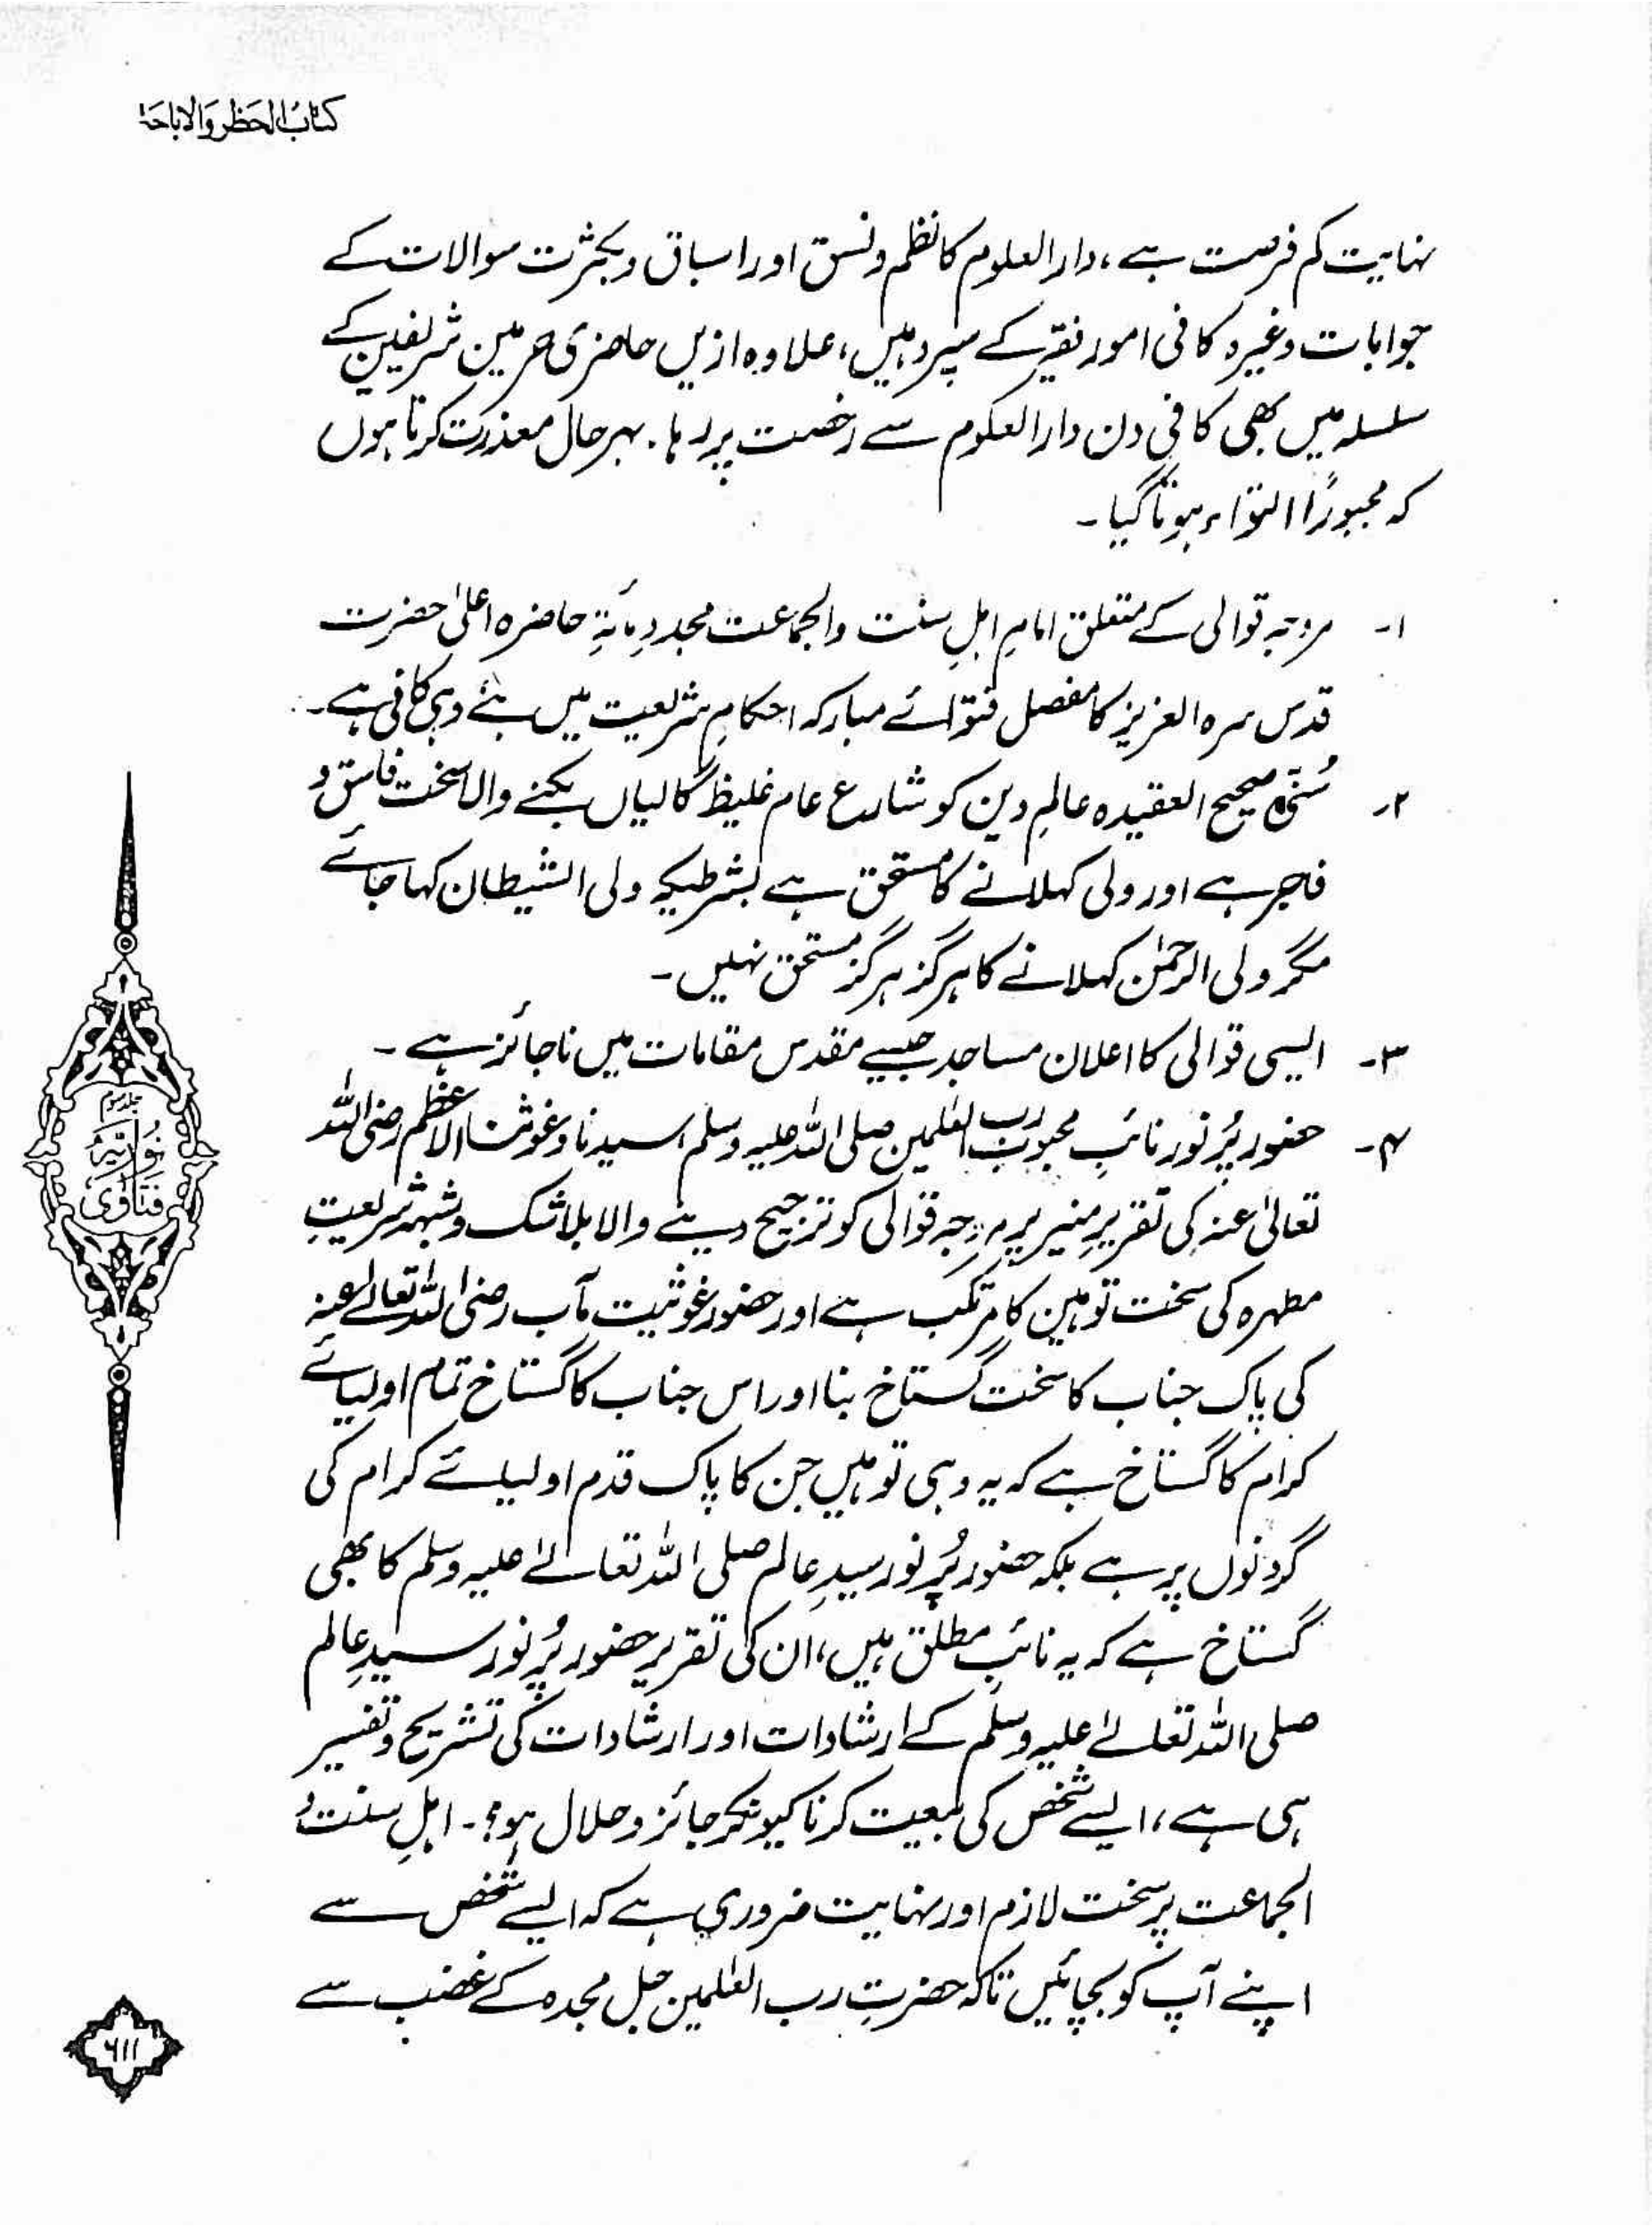 کتاب الحظر والاباحۃ
نہایت کم فرصت ہے، دارالعلوم کا نظم ونسق اور اسباق و بکثرت سوالات کے
جوابات وغیرہ کافی امور فقیر کے سپرد ہیں، علاوہ ازیں حاضری حرمین شریفین کے
سلسلہ میں بھی کافی دن دارالعلوم سے رخصت پر رہا۔ بہرحال معذرت کرتا ہوں
کہ مجبورًا التواء ہوتا گیا۔
۱۔ مروجہ قوالی کے متعلق امامِ اہلِ سنت والجماعت مجددِ مائۃِ حاضرہ اعلیٰ حضرت
قدس سرہ العزیز کا مفصل فتوائے مبارکہ احکامِ شریعت میں ہے وہی کافی ہے۔
۲۔ سُنّی صحیح العقیدہ عالمِ دین کو شارع عام غلیظ گالیاں بکنے والا سخت فاسق و
فاجر ہے اور ولی کہلانے کا مستحق ہے بشرطیکہ ولی الشیطان کہا جائے
مگر ولی الرحمٰن کہلانے کا ہرگز ہرگز مستحق نہیں۔
۳۔ ایسی قوالی کا اعلان مساجد جیسے مقدس مقامات میں ناجائز ہے۔
۴۔ حضور پُر نور نائبِ محبوبِ رب العٰلمین صلی اللہ علیہ وسلم سیدنا وغوثنا الاعظم رضی اللہ
تعالیٰ عنہ کی تقریرِ منیر پر مروجہ قوالی کو ترجیح دینے والا بلاشک وشبہہ شریعتِ
مطہرہ کی سخت توہین کا مرتکب ہے اور حضور غوثیت مآب رضی اللہ تعالےٰ عنہ
کی پاک جناب کا سخت گستاخ بنا اور اس جناب کا گستاخ تمام اولیائے
کرام کا گستاخ ہے کہ یہ وہی تو ہیں جن کا پاک قدم اولیائے کرام کی
گردنوں پر ہے بلکہ حضور پُر نور سیدِ عالم صلی اللہ تعالےٰ علیہ وسلم کا بھی
گستاخ ہے کہ یہ نائبِ مطلق ہیں، ان کی تقریر حضور پُر نور سیدِ عالم
صلی اللہ تعالےٰ علیہ وسلم کے ارشادات اور ارشادات کی تشریح وتفسیر
ہی ہے، ایسے شخص کی بیعت کرنا کیونکر جائز وحلال ہو؟۔ اہلِ سنت و
الجماعت پر سخت لازم اور نہایت ضروری ہے کہ ایسے شخص سے
اپنے آپ کو بچائیں تاکہ حضرتِ رب العٰلمین جل مجدہ کے غضب سے
جلد سوم
فتاوٰی نُوریّہ
۶۱۱